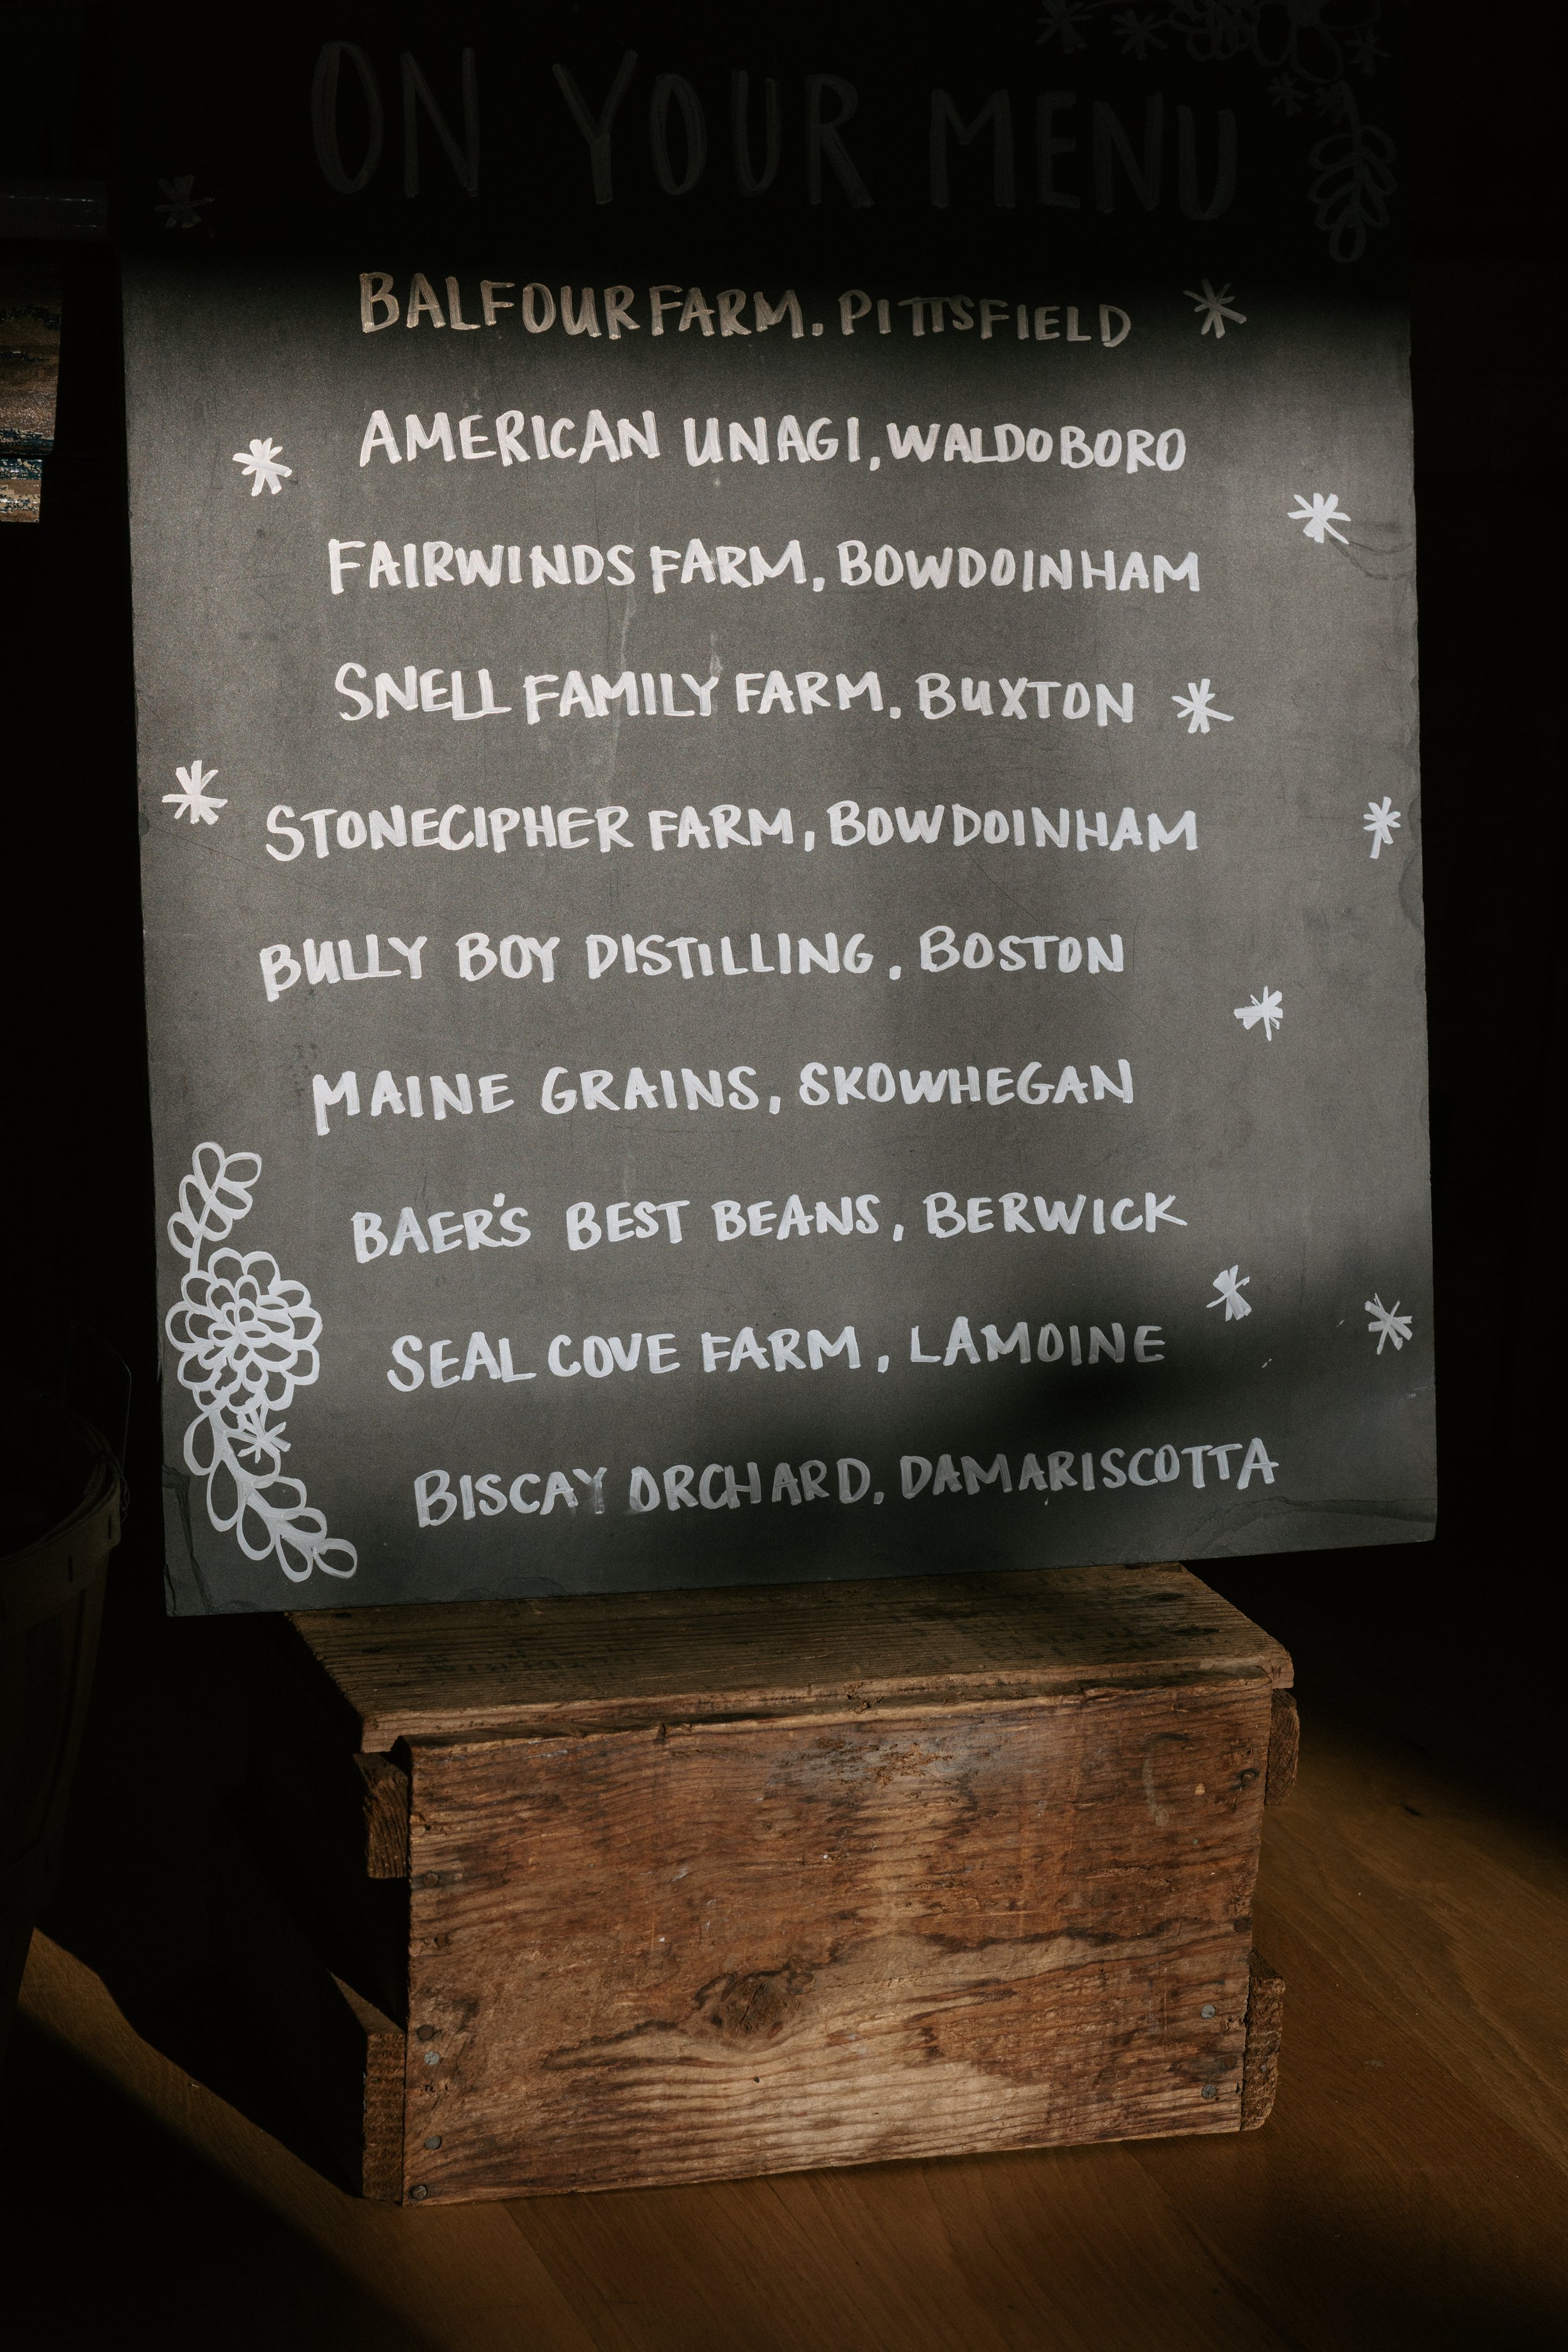 ON YOUR MENU
BALFOUR FARM. PITTSFIELD
AMERICAN UNAGI, WALDOBORO
FAIRWINDS FARM, BOWDOINHAM
SNELL FAMILY FARM, BUXTON
STONECIPHER FARM, BOWDOINHAM
BULLY BOY DISTILLING, BOSTON
MAINE GRAINS, SKOWHEGAN
BAER'S BEST BEANS, BERWICK
SEAL COVE FARM, LAMOINE
BISCAY ORCHARD, DAMARISCOTTA